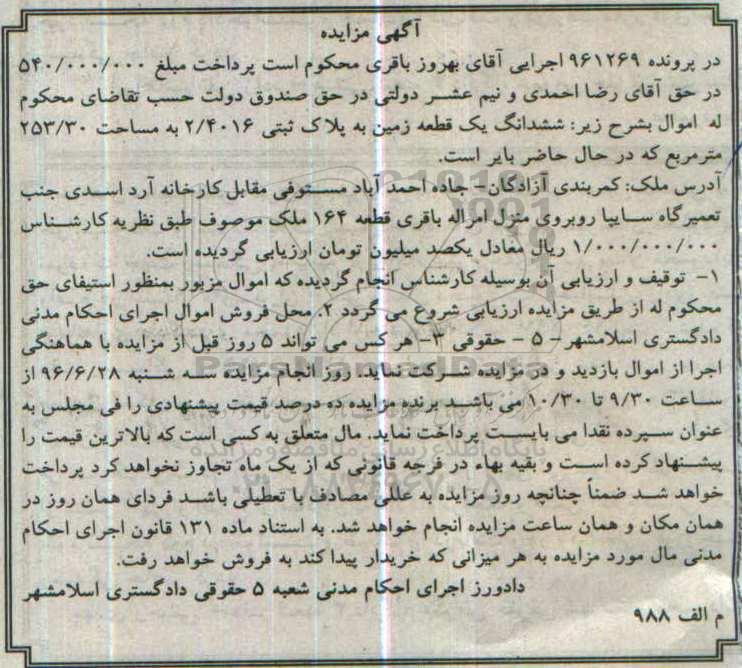 آگهی مزایده
در پرونده ۹۶۱۲۶۹ اجرایی آقای بهروز باقری محکوم است پرداخت مبلغ ۵۴۰/۰۰۰/۰۰۰
در حق آقای رضا احمدی و نیم عشر دولتی در حق صندوق دولت حسب تقاضای محکوم
له اموال بشرح زیر: ششدانگ یک قطعه زمین به پلاک ثبتی ۲/۴۰۱۶ به مساحت ۲۵۳/۳۰
مترمربع که در حال حاضر بایر است.
آدرس ملک: کمربندی آزادگان- جاده احمد آباد مستوفی مقابل کارخانه آرد اسدی جنب
تعمیرگاه سایپا روبروی منزل امراله باقری قطعه ۱۶۴ ملک موصوف طبق نظریه کارشناس
۱/۰۰۰/۰۰۰/۰۰۰ ریال معادل یکصد میلیون تومان ارزیابی گردیده است.
۱- توقیف و ارزیابی آن بوسیله کارشناس انجام گردیده که اموال مزبور بمنظور استیفای حق
محکوم له از طریق مزایده ارزیابی شروع می گردد ۲. محل فروش اموال اجرای احکام مدنی
دادگستری اسلامشهر- ۵ - حقوقی ۳- هر کس می تواند ۵ روز قبل از مزایده با هماهنگی
اجرا از اموال بازدید و در مزایده شرکت نماید. روز انجام مزایده سه شنبه ۹۶/۶/۲۸ از
ساعت ۹/۳۰ تا ۱۰/۳۰ می باشد برنده مزایده ده درصد قیمت پیشنهادی را فی مجلس به
عنوان سپرده نقدا می بایست پرداخت نماید. مال متعلق به کسی است که بالاترین قیمت را
پیشنهاد کرده است و بقیه بهاء در فرجه قانونی که از یک ماه تجاوز نخواهد کرد پرداخت
خواهد شد ضمناً چنانچه روز مزایده به عللی مصادف با تعطیلی باشد فردای همان روز در
همان مکان و همان ساعت مزایده انجام خواهد شد. به استناد ماده ۱۳۱ قانون اجرای احکام
مدنی مال مورد مزایده به هر میزانی که خریدار پیدا کند به فروش خواهد رفت.
دادورز اجرای احکام مدنی شعبه ۵ حقوقی دادگستری اسلامشهر
م الف ۹۸۸